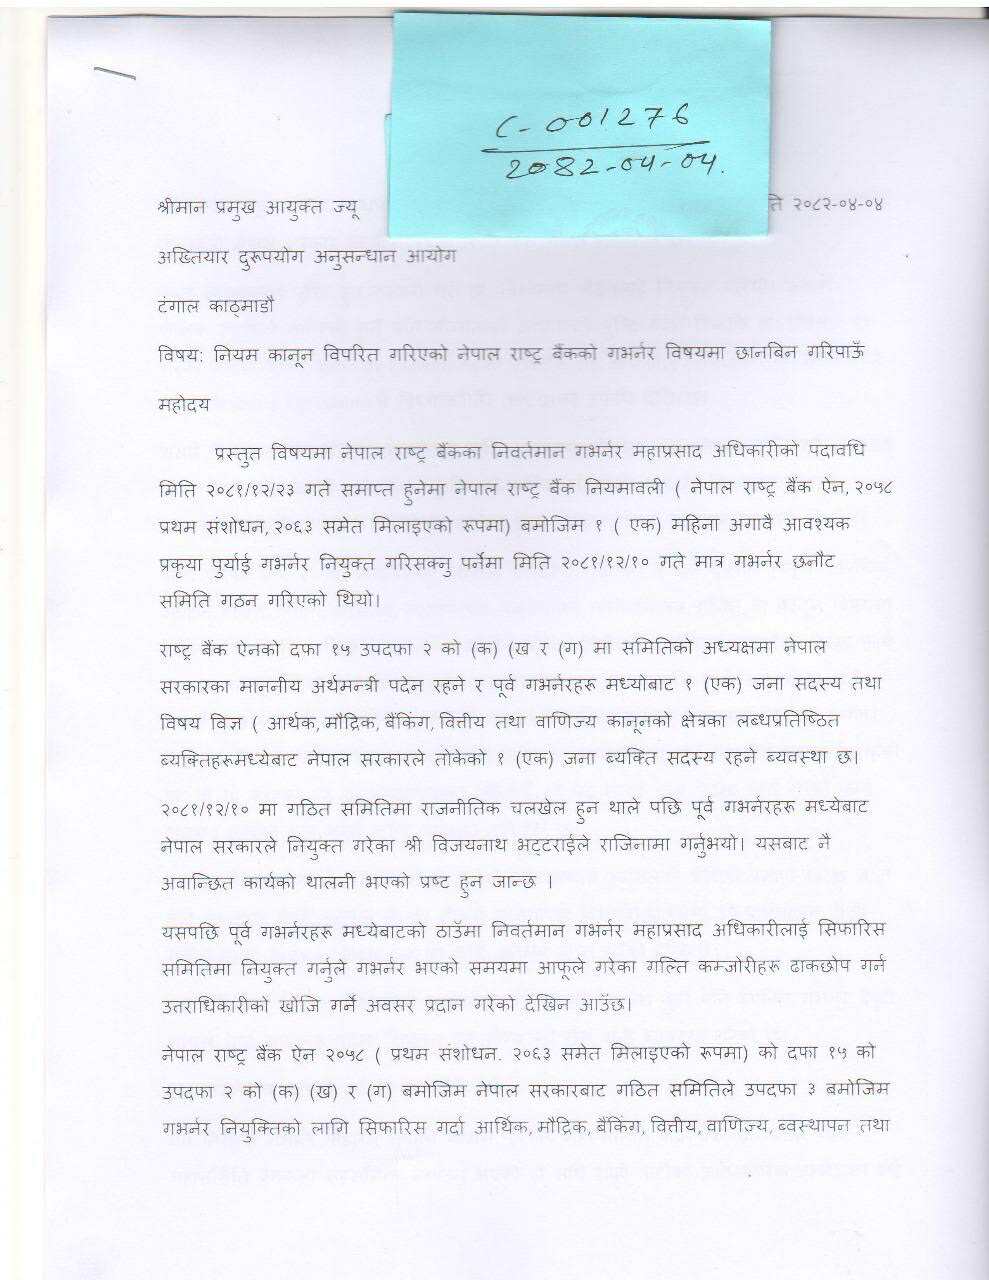 C-001276
2082-04-04.
श्रीमान प्रमुख आयुक्त ज्यू ति २०८२-०४-०४
अख्तियार दुरूपयोग अनुसन्धान आयोग
टंगाल काठ्माडौ
विषय: नियम कानून विपरित गरिएको नेपाल राष्ट्र बैंकको गभर्नर विषयमा छानबिन गरिपाऊँ
महोदय
प्रस्तुत विषयमा नेपाल राष्ट्र बैंकका निवर्तमान गभर्नर महाप्रसाद अधिकारीको पदावधि
मिति २०८१/१२/२३ गते समाप्त हुनेमा नेपाल राष्ट्र बैंक नियमावली ( नेपाल राष्ट्र बैंक ऐन, २०५८
प्रथम संशोधन, २०६३ समेत मिलाइएको रूपमा) बमोजिम १ ( एक) महिना अगावै आवश्यक
प्रकृया पुर्याई गभर्नर नियुक्त गरिसक्नु पर्नेमा मिति २०८१/१२/१० गते मात्र गभर्नर छनौट
समिति गठन गरिएको थियो।
राष्ट्र बैंक ऐनको दफा १५ उपदफा २ को (क) (ख र (ग) मा समितिको अध्यक्षमा नेपाल
सरकारका माननीय अर्थमन्त्री पदेन रहने र पूर्व गभर्नरहरू मध्योबाट १ (एक) जना सदस्य तथा
विषय विज्ञ ( आर्थिक, मौद्रिक, बैंकिंग, वित्तीय तथा वाणिज्य कानूनको क्षेत्रका लब्धप्रतिष्ठित
ब्यक्तिहरूमध्येबाट नेपाल सरकारले तोकेको १ (एक) जना ब्यक्ति सदस्य रहने ब्यवस्था छ।
२०८१/१२/१० मा गठित समितिमा राजनीतिक चलखेल हुन थाले पछि पूर्व गभर्नरहरू मध्येबाट
नेपाल सरकारले नियुक्त गरेका श्री विजयनाथ भट्टराईले राजिनामा गर्नुभयो। यसबाट नै
अवान्छित कार्यको थालनी भएको प्रष्ट हुन जान्छ ।
यसपछि पूर्व गभर्नरहरू मध्येबाटको ठाउँमा निवर्तमान गभर्नर महाप्रसाद अधिकारीलाई सिफारिस
समितिमा नियुक्त गर्नुले गभर्नर भएको समयमा आफूले गरेका गल्ति कम्जोरीहरू ढाकछोप गर्न
उत्तराधिकारीको खोजि गर्ने अवसर प्रदान गरेको देखिन आउँछ।
नेपाल राष्ट्र बैंक ऐन २०५८ ( प्रथम संशोधन. २०६३ समेत मिलाइएको रूपमा) को दफा १५ को
उपदफा २ को (क) (ख) र (ग) बमोजिम नेपाल सरकारबाट गठित समितिले उपदफा ३ बमोजिम
गभर्नर नियुक्तिको लागि सिफारिस गर्दा आर्थिक, मौद्रिक, बैंकिंग, वित्तीय, वाणिज्य, ब्वस्थापन तथा